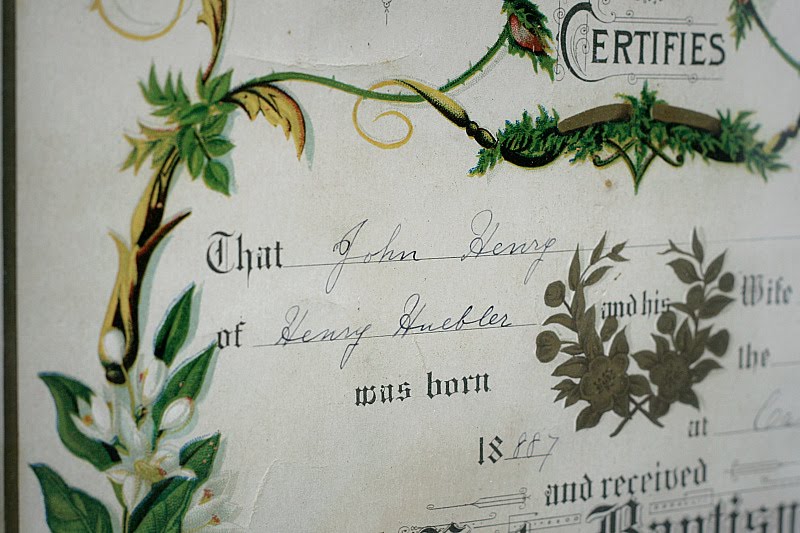 CERTIFIES
That John Henry
of Henry Huebler and his Wife
was born the
18 887 at
and received